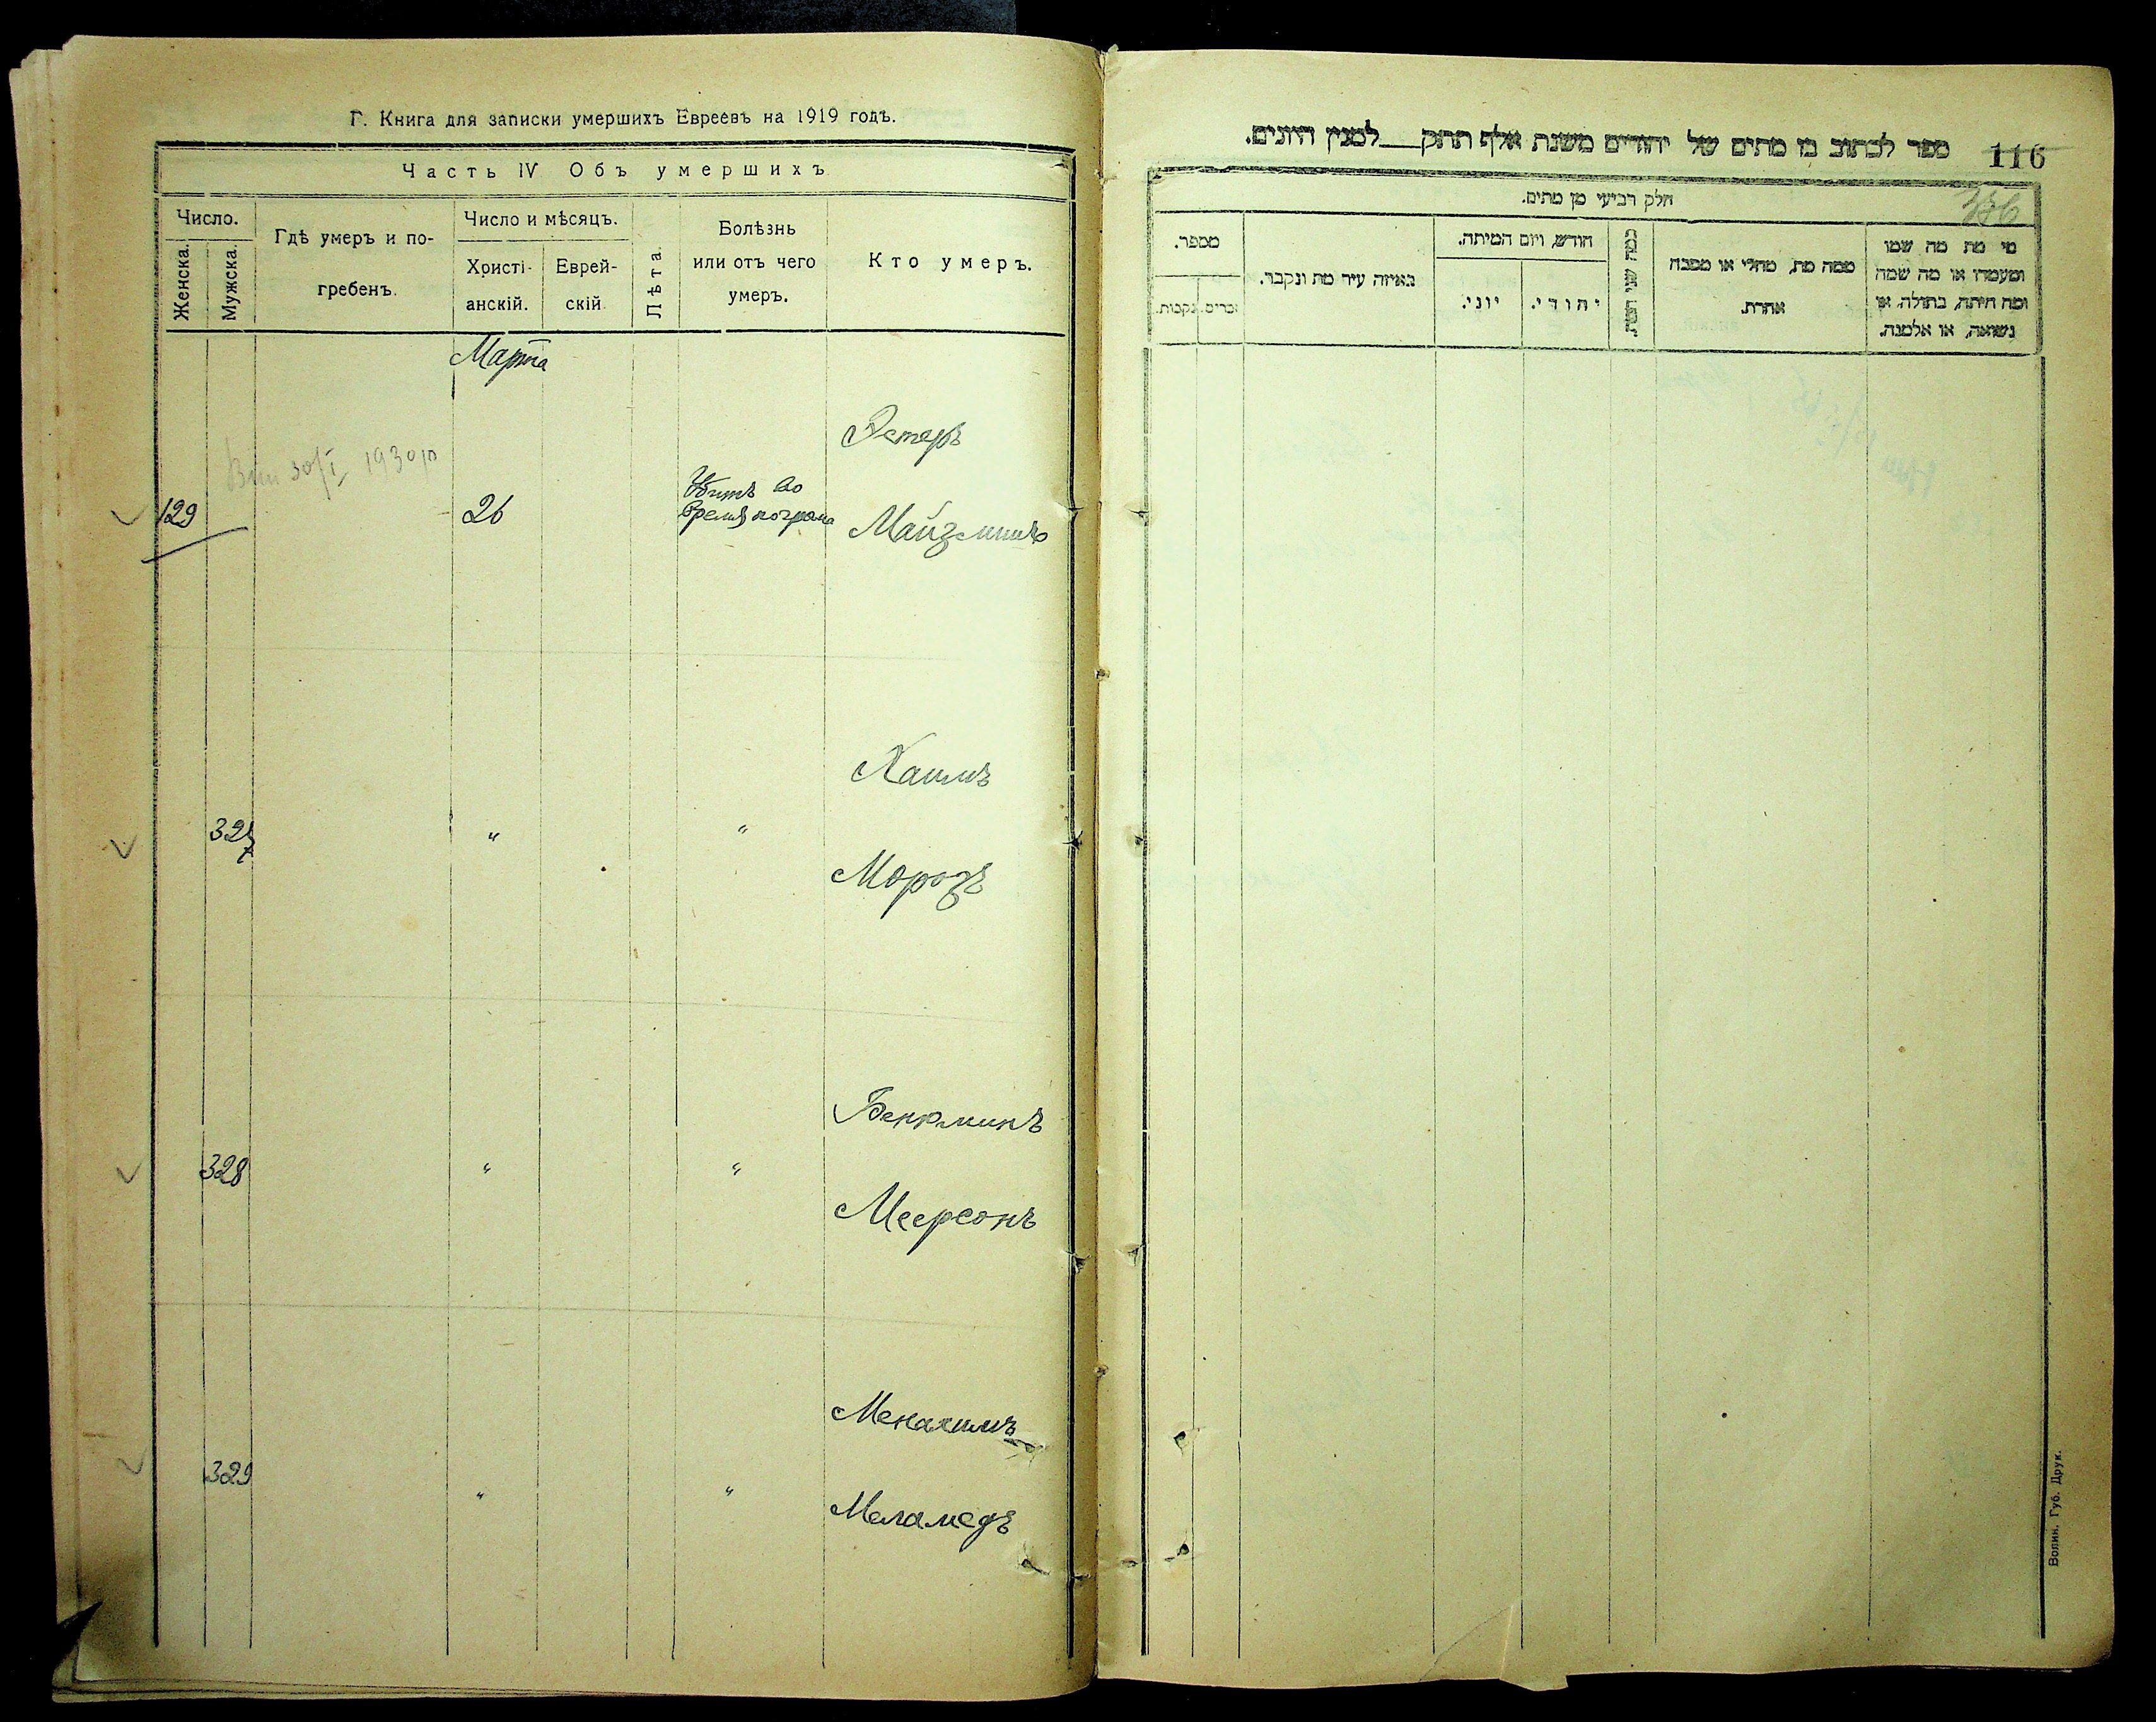 Г. Книга для записки умершихъ Евреевъ на 1919 годъ.
Часть IV Объ умершихъ
Число.
Женска.
Мужска.
Гдѣ умеръ и по-
гребенъ.
Число и мѣсяцъ.
Христі-
анскій.
Еврей-
скій
Лѣта.
Болѣзнь
или отъ чего
умеръ.
Кто умеръ.
Марта
Эстеръ
1930р
129
26
Убитъ во
время погрома
Хаимъ
"
"
Морозъ
Бенюминъ
328
"
"
Меерсонъ
Менахимъ
329
"
"
Меламедъ
ספר לכתוב בו מתים של יהודים משנת אלף תתק לכונין היונים.
116
חלק רביעי מן מתים.
מי מת מה שמו
ומעמדו או מה שמה
ומה היתה, בתולה, או
נשואה, או אלמנה.
ממה מת, מחלי או מסבה
אחרת.
כמה שני המת.
חודש, ויום המיתה.
יהודי.
יוני.
באיזה עיר מת ונקבר.
מספר.
זכרים.
נקבות.
Волин. Губ. Друк.